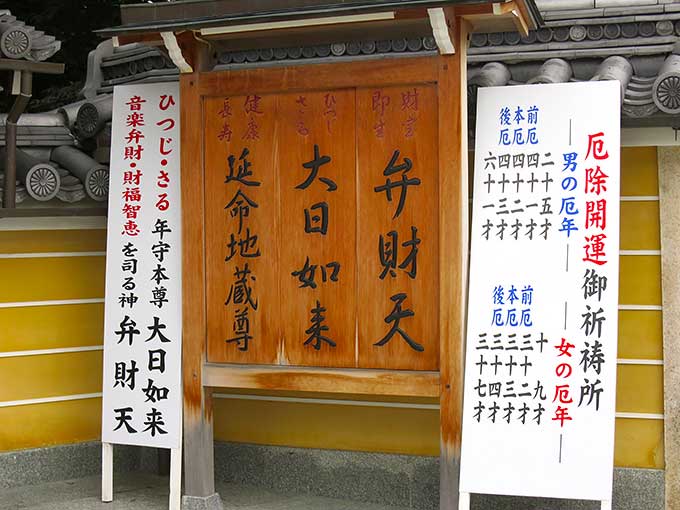 厄除開運御祈祷所
男の厄年
二十五才
前厄 四十一才
本厄 四十二才
後厄 四十三才
六十一才
女の厄年
十九才
前厄 三十二才
本厄 三十三才
後厄 三十四才
三十七才
財宝
即生
弁財天
ひつじ
さる
大日如来
健康
長寿
延命地蔵尊
ひつじ・さる年守本尊 大日如来
音楽弁財・財福智恵を司る神 弁財天